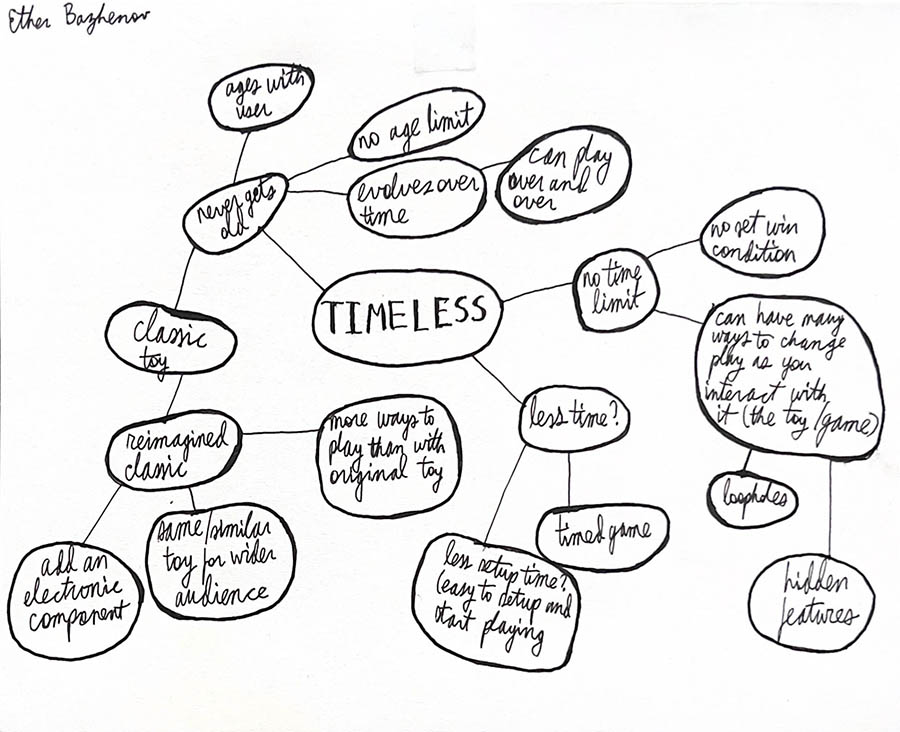 Ether Bazhenov
ages with
user
no age limit
never gets
old
evolves over
time
can play
over and
over
no set win
condition
no time
limit
TIMELESS
classic
toy
can have many
ways to change
play as you
interact with
it (the toy/game)
less time?
reimagined
classic
more ways to
play than with
original toy
loopholes
timed game
same/similar
toy for wider
audience
add an
electronic
component
less setup time?
(easy to setup and
start playing
hidden
features